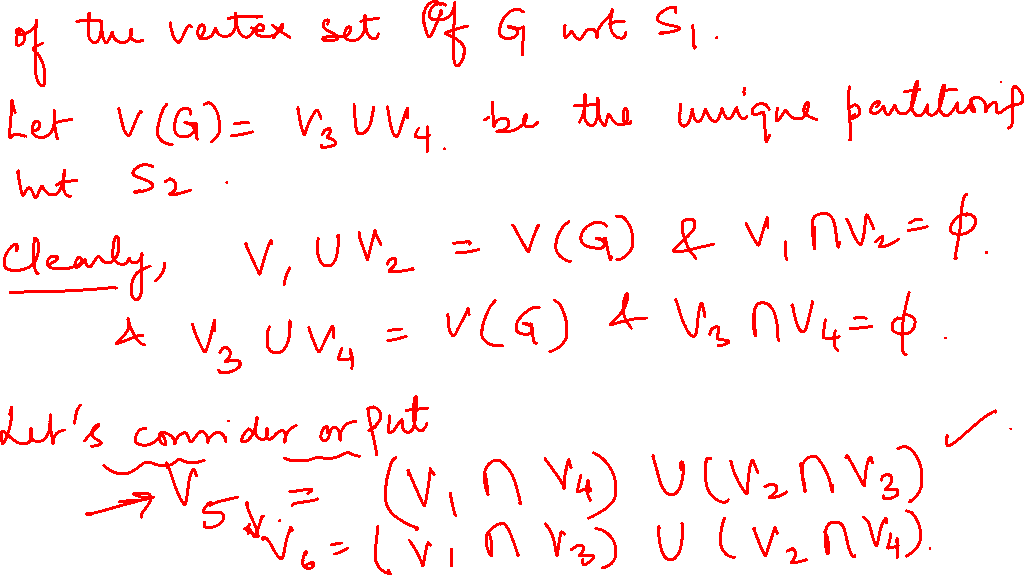 of the vertex set of G wrt S₁.
Let V(G) = V₃ ∪ V₄ be the unique partitions
wrt S₂.
Clearly, V₁ ∪ V₂ = V(G) & V₁ ∩ V₂ = ϕ.
& V₃ ∪ V₄ = V(G) & V₃ ∩ V₄ = ϕ.
Let's consider or put
→ V₅ = (V₁ ∩ V₄) ∪ (V₂ ∩ V₃) ✓.
V₆ = (V₁ ∩ V₃) ∪ (V₂ ∩ V₄).